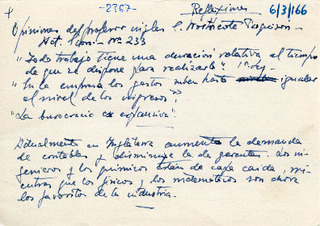 -2367-
Reflexiones
6/3/166
Opiniones del profesor inglés C. Northcote Parkinson
Not. Com. - Nº 233
"Todo trabajo tiene una duración relativa al tiempo
de que se dispone para realizarlo" 1ª ley -
"En la empresa los gastos suben hasta igualar
el nivel de los ingresos"
"La burocracia es expansiva".
Actualmente en Inglaterra aumenta la demanda
de contables y disminuye la de gerentes. Los in-
genieros y los químicos están de capa caída, mi-
entras que los físicos y los matemáticos son ahora
los favoritos de la industria.